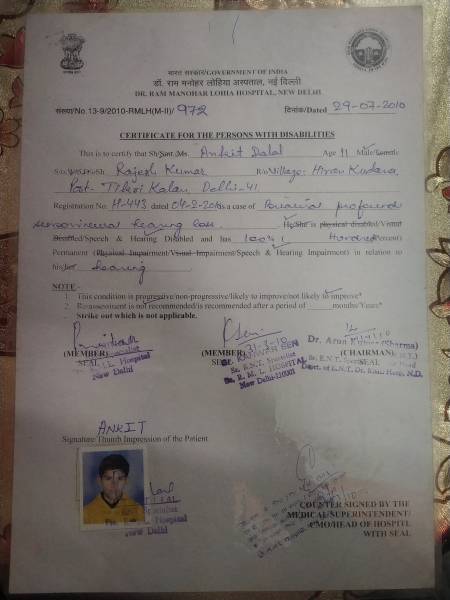 भारत सरकार/GOVERNMENT OF INDIA
डॉ. राम मनोहर लोहिया अस्पताल, नई दिल्ली
DR. RAM MANOHAR LOHIA HOSPITAL, NEW DELHI
संख्या/No.13-9/2010-RMLH(M-II)/972 दिनांक/Dated 29-07-2010
CERTIFICATE FOR THE PERSONS WITH DISABILITIES
This is to certify that Sh/Smt./Ms. Ankit Dalal Age 11 Male/Female
Rajesh Kumar R/o Village: Hiran Kudana,
Post- Tikri Kalan Delhi-41
Registration No. H-443 dated 04-2-20 is a case of Bilateral profound
sensorineural hearing loss. He/She is physical disabled/Visual
Disabled/Speech & Hearing Disabled and has 100% Hundred Percent)
Permanent (Physical Impairment/Visual Impairment/Speech & Hearing Impairment) in relation to
his/her hearing
NOTE
1. This condition is progressive/non-progressive/likely to improve/not likely to improve*
2. Re-assessment is not recommended/is recommended after a period of months/Years*
- Strike out which is not applicable.
(MEMBER) (MEMBER) (CHAIRMAN)
SEAL SEAL
Hospital
New Delhi
31-3-10
SEN
Sr. E.N.T. Specialist
Dr. R. M. L. HOSPITAL
New Delhi-110001
Dr. Arun Kumar (Sharma)
Sr. E.N.T.
ANKIT
Signature/Thumb Impression of the Patient
SEAL
Specialist
Hospital
New Delhi
COUNTER SIGNED BY THE
MEDICAL/SUPERINTENDENT/
CMO/HEAD OF HOSPITL
WITH SEAL